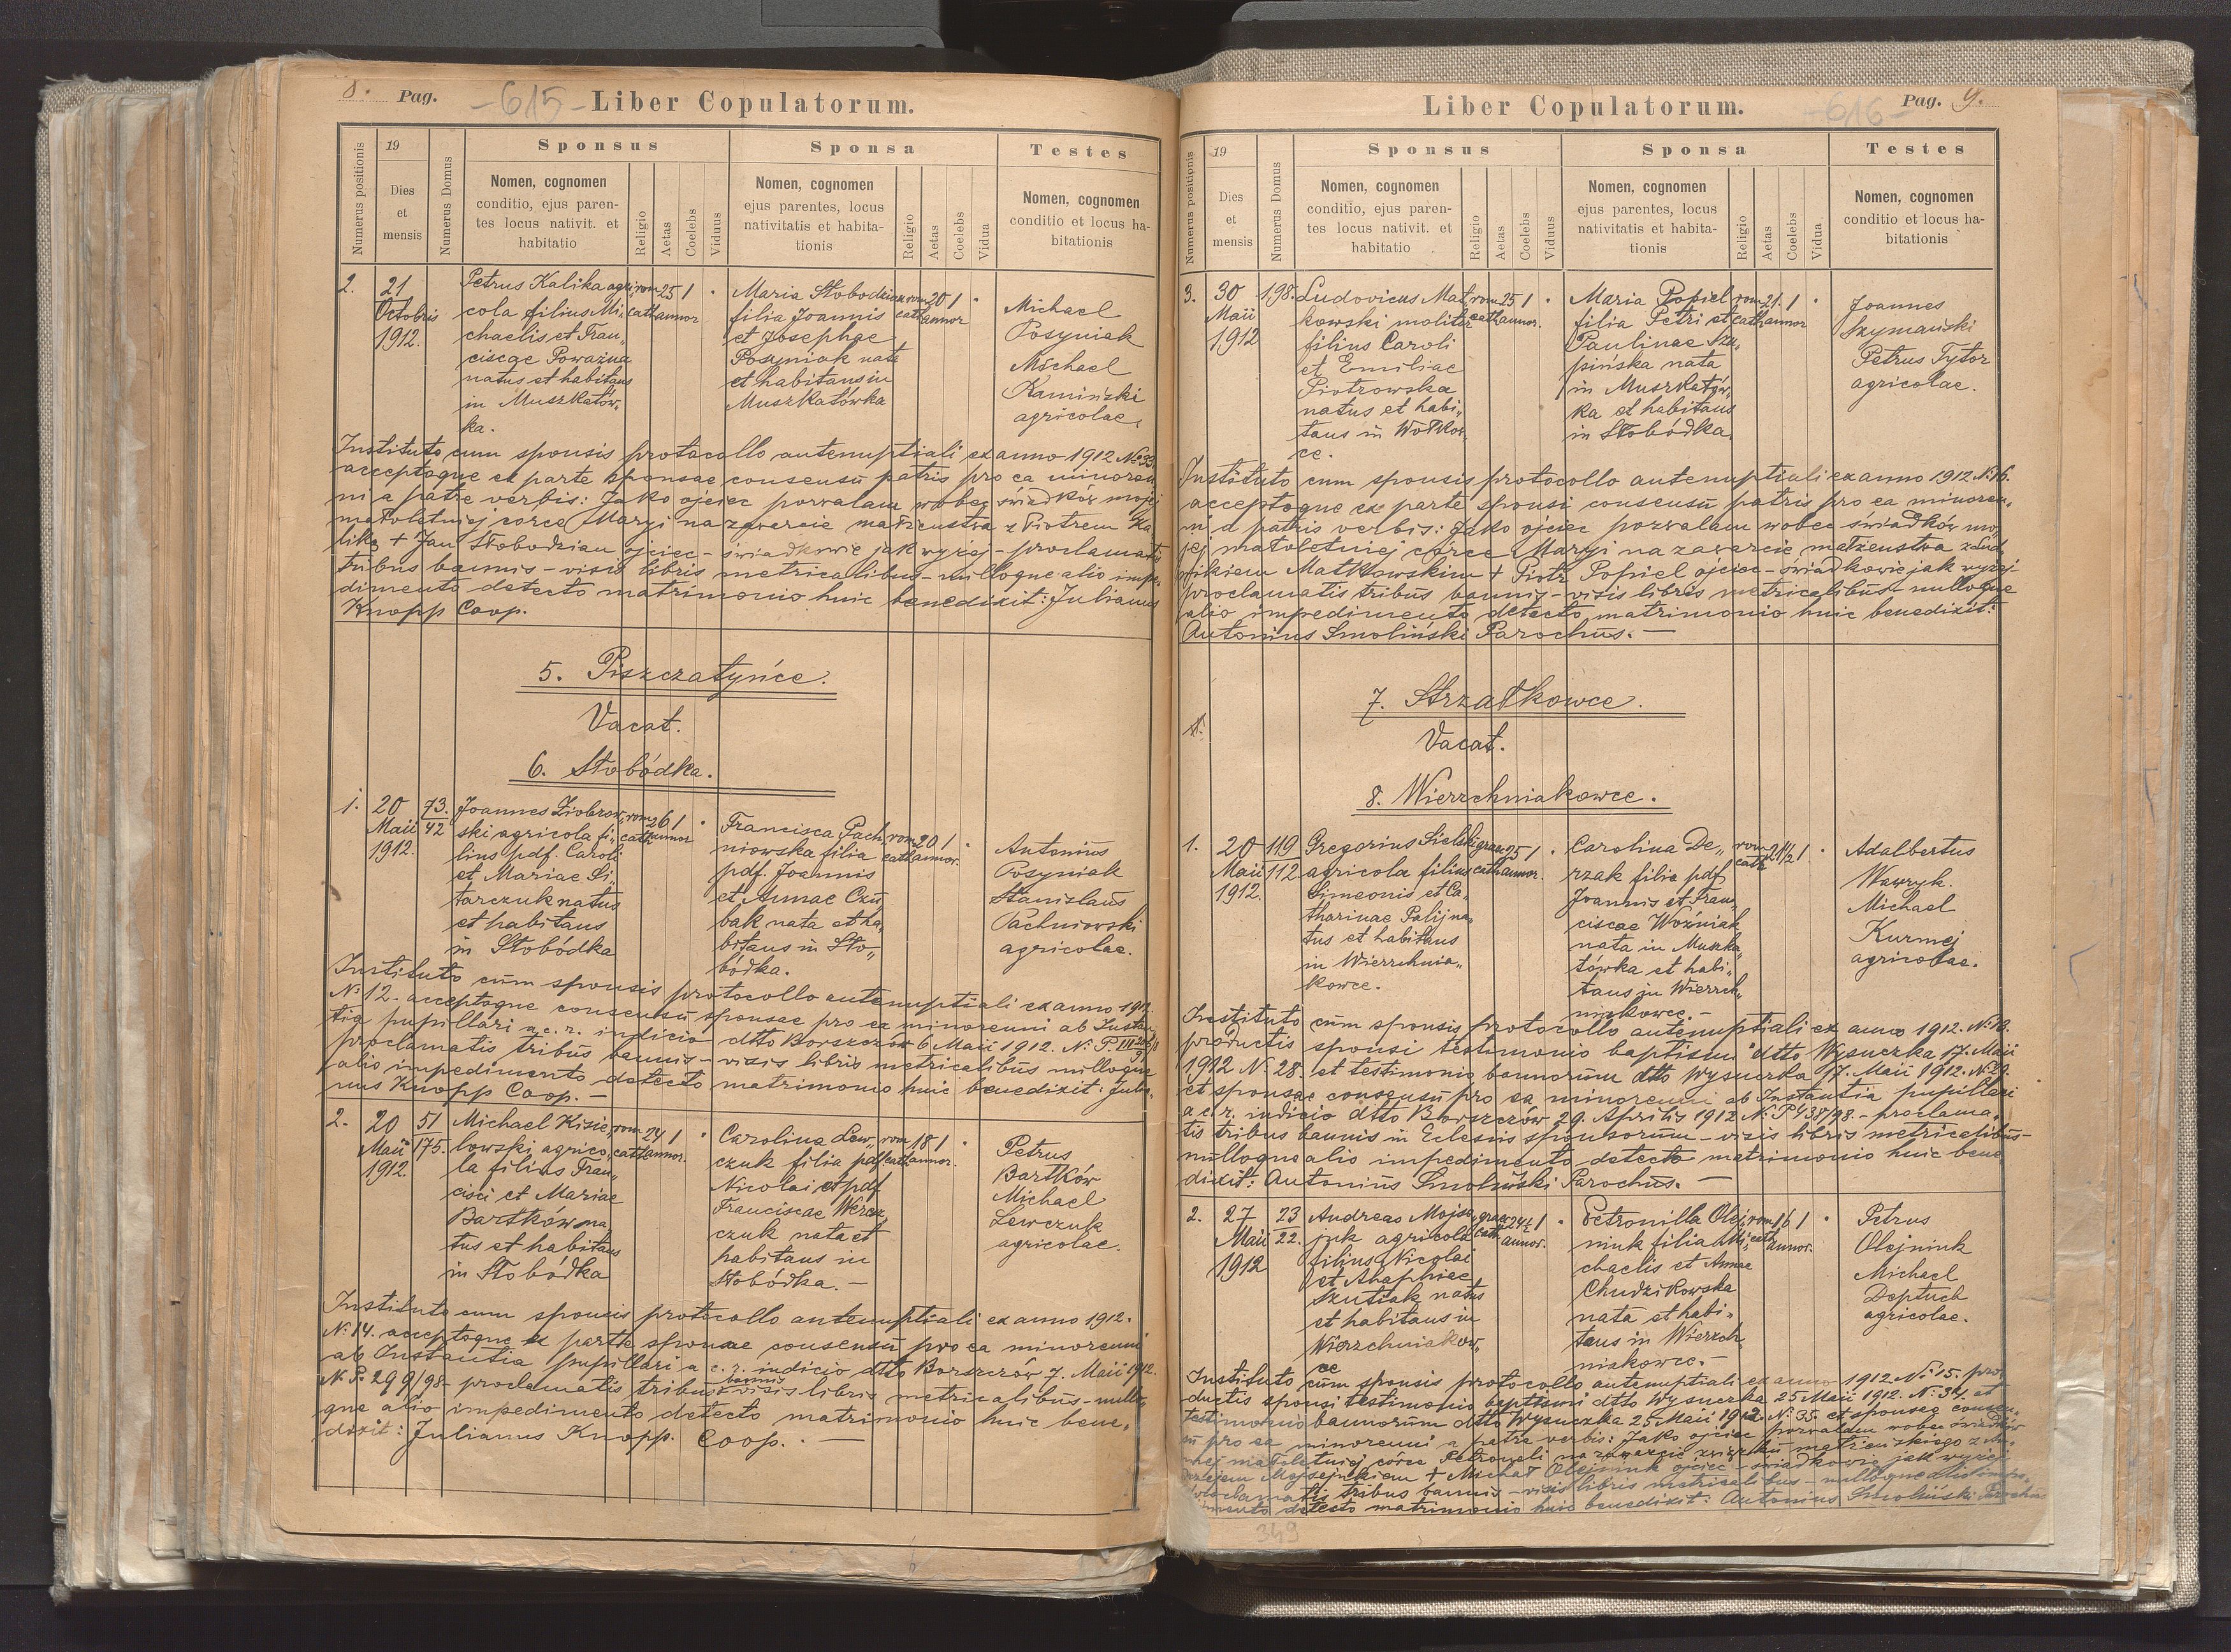 8. Pag. -615- Liber Copulatorum.
Numerus positionis
19
Dies
et
mensis
Numerus Domus
Sponsus
Nomen, cognomen
conditio, ejus paren-
tes locus nativit. et
habitatio
Religio
Aetas
Coelebs
Viduus
Sponsa
Nomen, cognomen
ejus parentes, locus
nativitatis et habita-
tionis
Religio
Aetas
Coelebs
Vidua
Testes
Nomen, cognomen
conditio et locus ha-
bitationis
2.
21
Octobris
1912.
Petrus Kalika agri„
cola filius Mi„
chaelis et Fran„
ciscae Poważna
natus et habitans
in Muszkatów„
ka.
rom
cath
25
annor
1
Maria Słobodzian
filia Joannis
et Josephae
Posyniak nata
et habitans in
Muszkatówka
rom
cath
20
annor
1
Michael
Posyniak
Michael
Kamiński
agricolae.
Instituto cum sponsis protocollo antenuptiali ex anno 1912 No 33
acceptoque ex parte sponsae consensu patris pro ea minoren
ni a patre verbis: Jako ojciec pozwalam wobec świadków mojej
małoletniej córce Maryi na zawarcie małżeństwa z Piotrem Ka
liką + Jan Słobodzian ojciec - świadkowie jak wyżej - proclamatis
tribus bannis - visis libris metricalibus - nulloque alio impe
dimento detecto matrimonio huic benedixit: Julianus
Knopp Coop.
5. Piszczatyńce.
Vacat.
6. Słobódka.
1.
20
Maii
1912.
73.
42
Joannes Ziobrow„
ski agricola fi„
lius pdf. Caroli
et Mariae Si„
tarczuk natus
et habitans
in Słobódka
rom
cath
26
annor
1
Francisca Pach„
niowska filia
pdf. Joannis
et Annae Czu„
bak nata et ha„
bitans in Sło„
bódka.
rom
cath
20
annor.
1
Antonius
Posyniak
Stanislaus
Pachniowski
agricolae.
Instituto cum sponsis protocollo antenuptiali ex anno 1912.
No 12 - acceptoque consensu sponsae pro ea minorenni ab Instan„
tia pupillari a c. r. indicio dtto Borszczów 6 Maii 1912. No P III
proclamatis tribus bannis - visis libris metricalibus nulloque
alio impedimento detecto matrimonio huic benedixit: Julia„
nus Knopp Coop. -
2.
20
Maii
1912.
51
175.
Michael Kisie„
lowski agrico„
la filius Fran„
cisci et Mariae
Bartków na„
tus et habitans
in Słobódka
rom
cath
24
annor.
1
Carolina Lew„
czuk filia pdf
Nicolai et pdf
Franciscae Weresz„
czuk nata et
habitans in
Słobódka. -
rom
cath
18
annor.
1
Petrus
Bartków
Michael
Lewczuk
agricolae.
Instituto cum sponsis protocollo antenuptiali ex anno 1912.
No 14. acceptoque ex parte sponsae consensu pro ea minorenni
ab Instantia pupillari a c. r. indicio dtto Borszczów 7. Maii 1912.
No P. 299/98 - proclamatis tribus bannis - visis libris metricalibus - nullo„
que alio impedimento detecto matrimonio huic bene„
dixit: Julianus Knopp. Coop. -
Liber Copulatorum. -616- Pag. 9.
Numerus positionis
19
Dies
et
mensis
Numerus Domus
Sponsus
Nomen, cognomen
conditio, ejus paren-
tes locus nativit. et
habitatio
Religio
Aetas
Coelebs
Viduus
Sponsa
Nomen, cognomen
ejus parentes, locus
nativitatis et habita-
tionis
Religio
Aetas
Coelebs
Vidua
Testes
Nomen, cognomen
conditio et locus ha-
bitationis
3.
30
Maii
1912
198.
Ludovicus Mat„
kowski molitor
filius Caroli
et Emiliae
Piotrowska
natus et habi„
tans in Wołkow„
ce.
rom
cath
25
annor.
1
Maria Popiel
filia Petri et
Paulinae Szu„
pińska nata
in Muszkatów„
ka et habitans
in Słobódka.
rom
cath
21.
annor
1
Joannes
Szymański
Petrus Tytor
agricolae.
Instituto cum sponsis protocollo antenuptiali ex anno 1912 No 16.
acceptoque ex parte sponsi consensu patris pro ea minoren„
ni a patris verbis: Jako ojciec pozwalam wobec świadków mo„
jej małoletniej córce Maryi na zawarcie małżeństwa z Lud„
wikiem Matkowskim + Piotr Popiel ojciec - świadkowie jak wyżej -
proclamatis tribus bannis - visis libris metricalibus - nulloque
alio impedimento detecto matrimonio huic benedixit:
Antonius Smoliński Parochus. -
7. Strzałkowce.
Vacat.
8. Wierzchniakowce.
1.
20
Maii
1912.
119
112
Gregorius Sielski
agricola filius
Simeonis et Ca„
tharinae Palij na„
tus et habitans
in Wierzchnia„
kowce.
graec
cath
25
annor.
1
Carolina De„
rzak filia pdf
Joannis et Fran„
ciscae Woźniak
nata in Muszka„
tówka et habi„
tans in Wierzch„
niakowce. -
rom
cath
21 1/2
1
Adalbertus
Wawryk.
Michael
Kurmej
agricolae.
Instituto cum sponsis protocollo antenuptiali ex anno 1912. No 13.
productis sponsi testimonio baptismi dtto Wysuczka 17. Maii
1912 No 28. et testimonio bannorum dtto Wysuczka 17. Maii 1912. No 29.
et sponsae consensu pro ea minorenni ab Instantia pupillari
a c. r. indicio dtto Borszczów 29. Aprilis 1912 No P 438/98. - proclama„
tis tribus bannis in Eclesiis sponsorum - visis libris metricalibus -
nulloque alio impedimento detecto matrimonio huic bene
dixit: Antonius Smoliński Parochus. -
2.
27
Maii
1912
23
22.
Andreas Mojse„
juk agricola
filius Nicolai
et Ahaphiae
Szutiak natus
et habitans in
Wierzchniakow„
ce
graec
cath
24
annor.
1
Petronilla Olej„
niuk filia Mi„
chaelis et Annae
Chudzikowska
nata et habi„
tans in Wierzch„
niakowce. -
rom
cath
16
annor.
1
Petrus
Olejniuk
Michael
Deptuch
agricolae.
Instituto cum sponsis protocollo antenuptiali ex anno 1912 No 15. pro„
ductis sponsi testimonio baptismi dtto Wysuczka 25 Maii 1912. No 34. et
testimonio bannorum dtto Wysuczka 25 Maii 1912. No 35. et sponsae consen„
su pro ea minorenni a patre verbis: Jako ojciec pozwalam wobec świadków
mej małoletniej córce Petroneli na zawarcie związku małżeńskiego z An„
drzejem Mojsejukiem + Michał Olejniuk ojciec - świadkowie jak wyżej
proclamatis tribus bannis - visis libris metricalibus - nulloque alio impe„
dimento detecto matrimonio huic benedixit: Antonius Smoliński Parochus
349